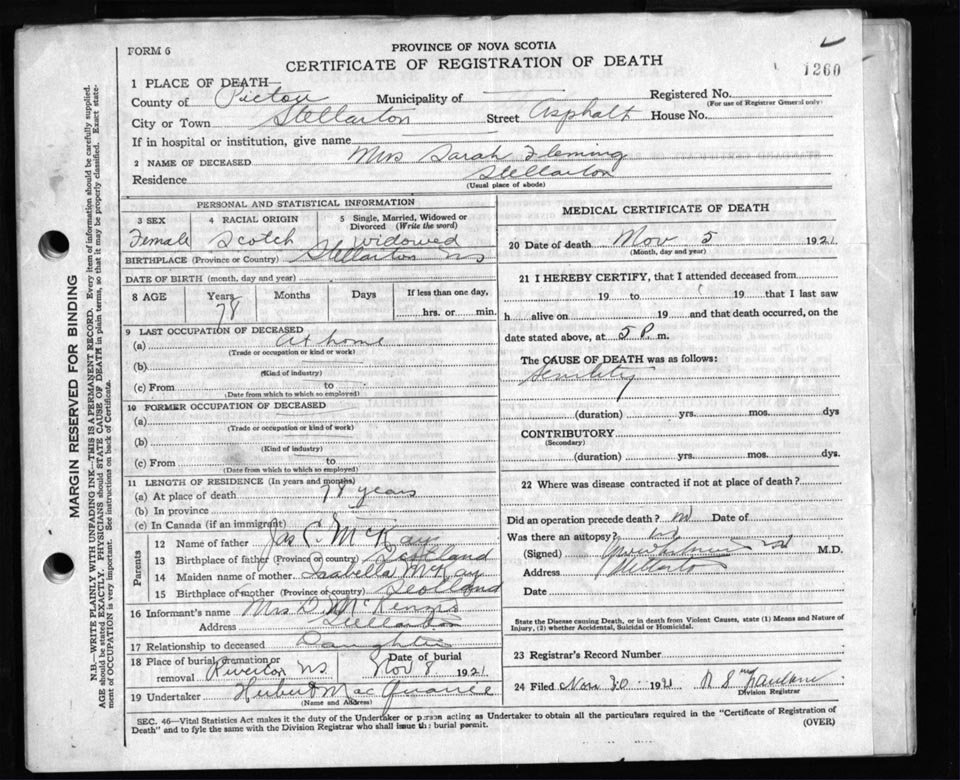 FORM 6
PROVINCE OF NOVA SCOTIA
CERTIFICATE OF REGISTRATION OF DEATH
1260
1 PLACE OF DEATH—
County of Pictou Municipality of Registered No.
(For use of Registrar General only)
City or Town Stellarton Street Asphalt House No.
If in hospital or institution, give name
2 NAME OF DECEASED Mrs Sarah Fleming
Residence Stellarton
(Usual place of abode)
PERSONAL AND STATISTICAL INFORMATION
3 SEX 4 RACIAL ORIGIN 5 Single, Married, Widowed or Divorced (Write the word)
Female Scotch widowed
BIRTHPLACE (Province or Country) Stellarton NS
DATE OF BIRTH (month, day and year)
8 AGE Years Months Days If less than one day,
78 hrs. or min.
9 LAST OCCUPATION OF DECEASED
(a) At home
(Trade or occupation or kind or work)
(b)
(Kind of industry)
(c) From to
(Date from which to which so employed)
10 FORMER OCCUPATION OF DECEASED
(a)
(Trade or occupation or kind of work)
(b)
(Kind of industry)
(c) From to
(Date from which to which so employed)
11 LENGTH OF RESIDENCE (In years and months)
(a) At place of death 78 years
(b) In province
(c) In Canada (if an immigrant)
Parents
12 Name of father Jas C. McKay
13 Birthplace of father (Province or country) Scotland
14 Maiden name of mother Isabella McKay
15 Birthplace of mother (Province or country) Scotland
16 Informant's name Mrs D. McKenzie
Address Stellarton
17 Relationship to deceased Daughter
18 Place of burial, cremation or removal Riverton NS Date of burial Nov 8 1921
19 Undertaker Hubert MacQuarrie
(Name and Address)
MEDICAL CERTIFICATE OF DEATH
20 Date of death Nov 5 1921
(Month, day and year)
21 I HEREBY CERTIFY, that I attended deceased from
19 to 19 that I last saw
h alive on 19 and that death occurred, on the
date stated above, at 5 P. m.
The CAUSE OF DEATH was as follows:
Senility
(duration) yrs. mos. dys
CONTRIBUTORY
(Secondary)
(duration) yrs. mos. dys.
22 Where was disease contracted if not at place of death?
Did an operation precede death? no Date of
Was there an autopsy? no
(Signed) M.D.
Address Stellarton
Date
State the Disease causing Death, or in death from Violent Causes, state (1) Means and Nature of
Injury, (2) whether Accidental, Suicidal or Homicidal.
23 Registrar's Record Number
24 Filed Nov 30 1921
Division Registrar
SEC. 46—Vital Statistics Act makes it the duty of the Undertaker or person acting as Undertaker to obtain all the particulars required in the "Certificate of Registration of
Death" and to fyle the same with the Division Registrar who shall issue the burial permit. (OVER)
MARGIN RESERVED FOR BINDING
N.B.—WRITE PLAINLY WITH UNFADING INK—THIS IS A PERMANENT RECORD. Every item of information should be carefully supplied.
AGE should be stated EXACTLY. PHYSICIANS should STATE CAUSE OF DEATH in plain terms, so that it may be properly classified. Exact state-
ment of OCCUPATION is very important. See instructions on back of Certificate.